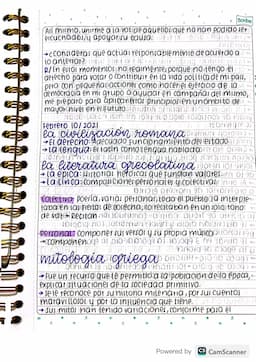 Scribe
Así mismo, unirme a la voz de aquellos que no han podido ser
escuchados/y apoyar su causa.
→ ¿consideras que actúas responsablemente de acuerdo a
lo anterior?
R/ En estos momentos no realmente porque no tengo el
derecho para votar o contribuir en la vida política de mi país,
pero con pequeñas acciones como hacer el ejercicio de la
democracia en mi grupo o ayudar en campañas del mismo,
me preparo para aplicar estos principios en un ámbito de
mayor nivel en el futuro.
febrero 10/2021
la civilización romana
→ El derecho: adecuado funcionamiento del Estado.
→ La lengua: el latín como lengua hablada.
la literatura grecolatina
→ La épica: historias heroicas que fundan valores.
→ La lírica: composiciones personales y colectivas.
Colectiva: poesía, varias personas, todo el pueblo la interpre-
taba en
→ recitan
Personal: componer sus versos y su propia música
→ componen
mitología griega
→ Fue un recurso que le permitía a la población de la época,
explicar situaciones de la sociedad primitiva.
→ se le reconoce por su historia milenaria, por sus cuentos
maravillosos y por la influencia que tiene.
→ Sus mitos han tenido variaciones, conforme pasó el
Powered by CamScanner